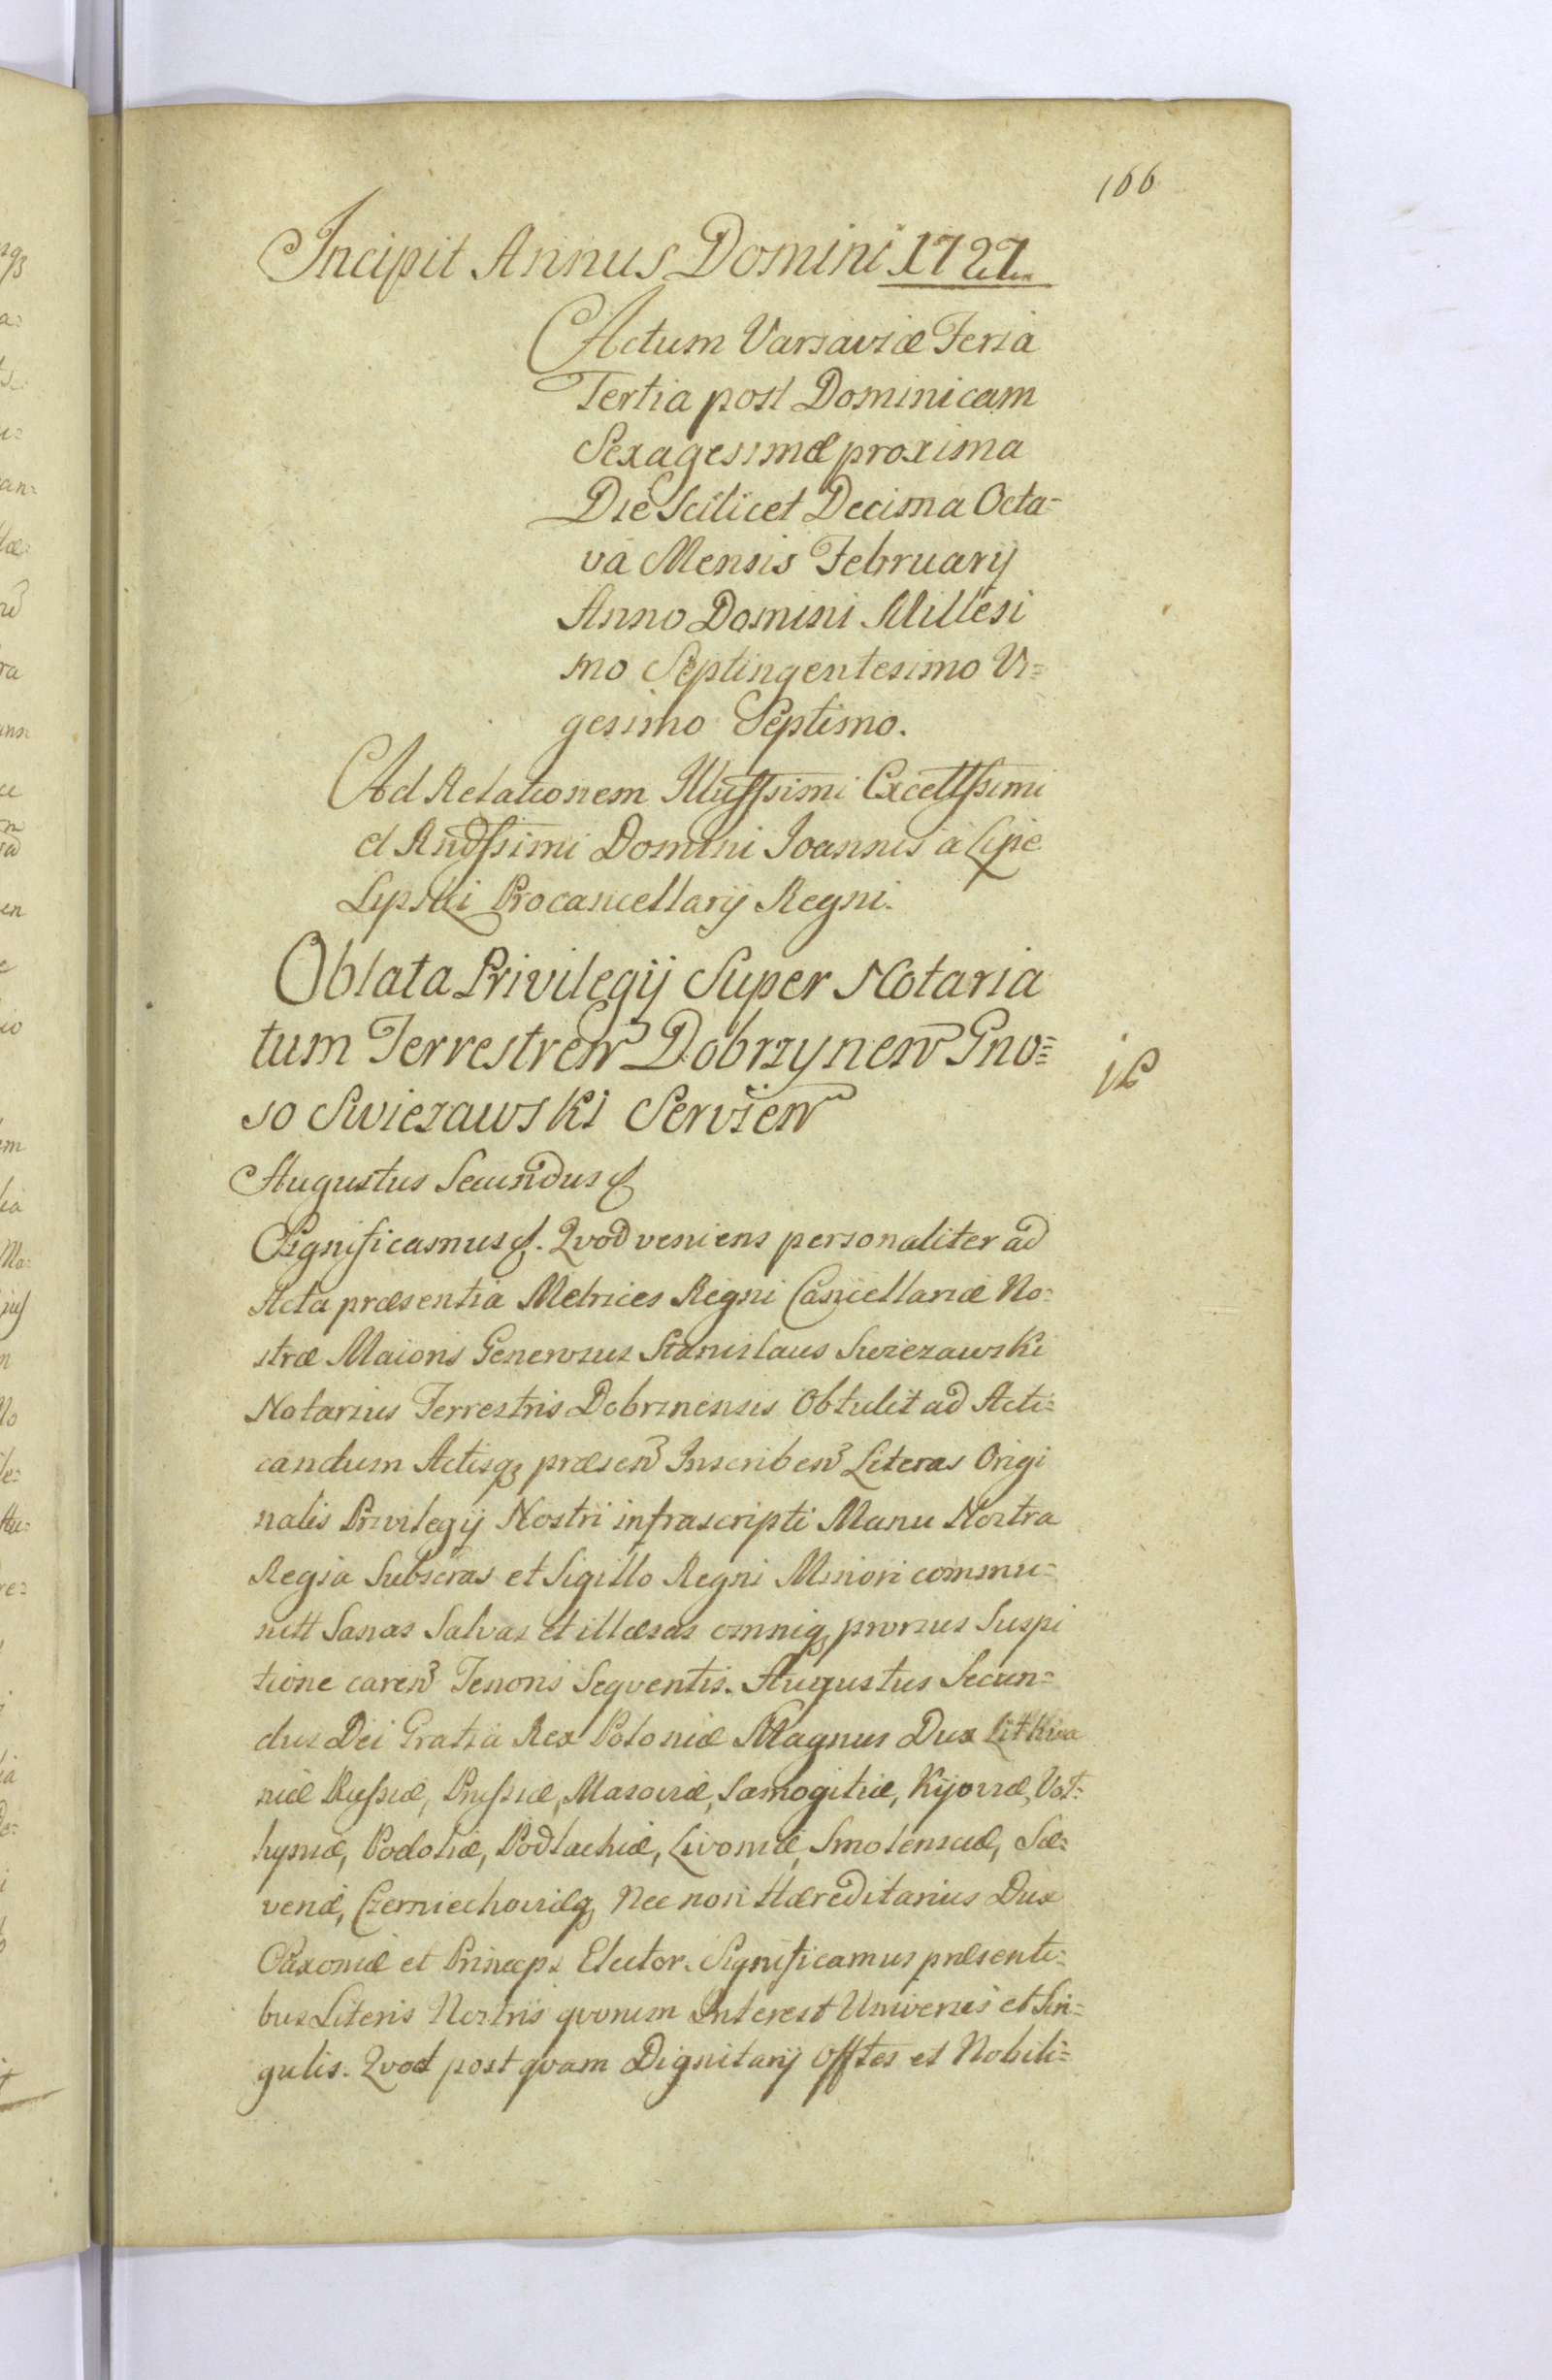 166
Incipit Annus Domini 1727
Actum Varsaviæ Feria
Tertia post Dominicam
Sexagesimæ proxima
Die Scilicet Decima Octa=
va Mensis Februarij
Anno Domini Millesi
mo Septingentesimo Vi=
gesimo Septimo.
Ad Relationem Illussimi Excellssimi
et Rndssimi Domini Joannis a Lipie
Lipski Procancellarij Regni.
Oblata Privilegij Super Notaria
tum Terrestren Dobrzynen Gno=
so Swiezawski Servien
Augustus Secundus &
Significamus &. Qvod veniens personaliter ad
Acta præsentia Metrices Regni Cancellariæ No=
stræ Maioris Generosus Stanislaus Swiezawski
Notarius Terrestris Dobrinensis Obtulit ad Acti=
candum Actisq præsen Inscriben Literas Origi
nalis Privilegij Nostri infrascripti Manu Nostra
Regia Subscras et Sigillo Regni Minori commu=
nitt Sanas Salvas et illæsas omniq prorsus Suspi
tione caren Tenoris Seqventis. Augustus Secun=
dus Dei Gratia Rex Poloniæ Magnus Dux Lithva
niæ Russiæ, Prussiæ, Masoviæ, Samogitiæ, Kijoviæ, Vol=
hyniæ, Podoliæ, Podlachiæ, Livoniæ, Smolensciæ, Sæ=
veriæ, Czerniechoviæq Nec non Hæreditarius Dux
Saxoniæ et Princeps Elector. Significamus præsenti=
bus Literis Nostris qvorum Interest Universis et Sin=
gulis. Qvod post qvam Dignitarij Offtes et Nobili=